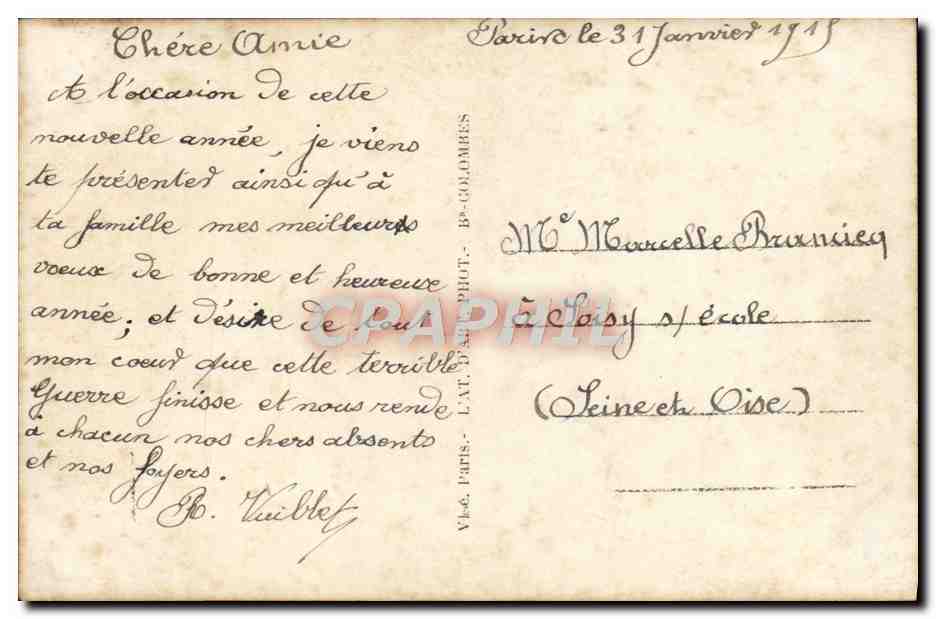 Chère Amie
Paris le 31 Janvier 1915
A l'occasion de cette
nouvelle année, je viens
te présenter ainsi qu'à
ta famille mes meilleurs
voeux de bonne et heureuse
année; et désire de tout
mon coeur que cette terrible
Guerre finisse et nous rende
à chacun nos chers absents
et nos foyers.
R. Vuiblet
Visé. Paris.- L'AT. D'ART PHOT.- Bs-COLOMBES
Me Marcelle
à Soisy s/ école
(Seine et Oise)
CPAPHIL